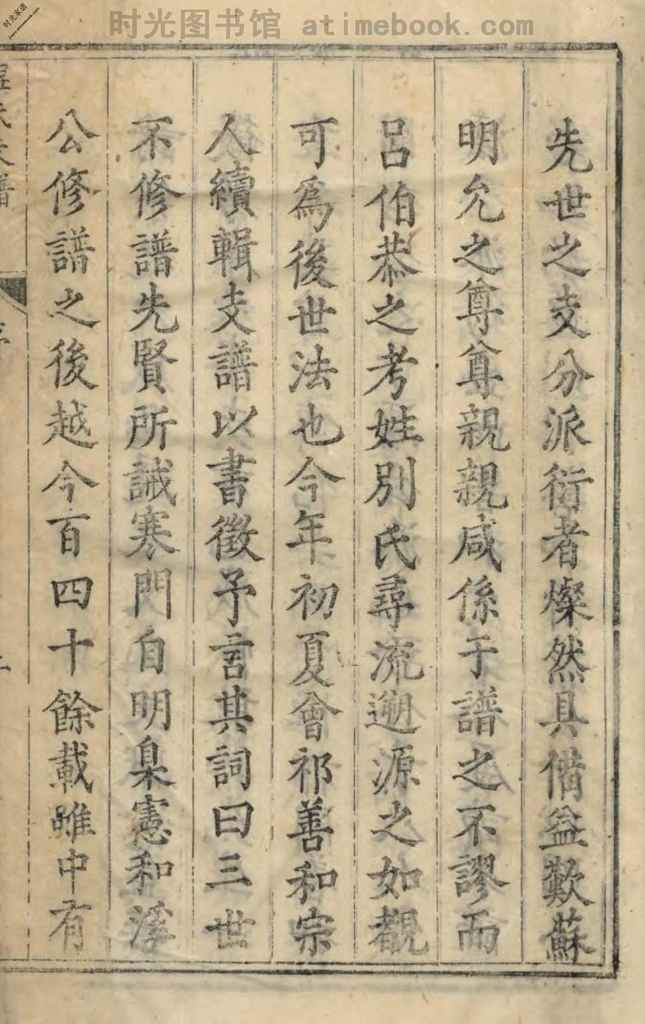 时光图书馆 atimebook.com
先世之支分派衍者燦然具僃益歎蘇
明允之尊尊親親咸係于譜之不謬而
呂伯恭之考姓別氏尋流遡源之如觀
可爲後世法也今年初夏會祁善和宗
人續輯支譜以書徵予言其詞曰三世
不修譜先賢所誡寒門自明臬憲和溪
公修譜之後越今百四十餘載雖中有
氏支譜
序